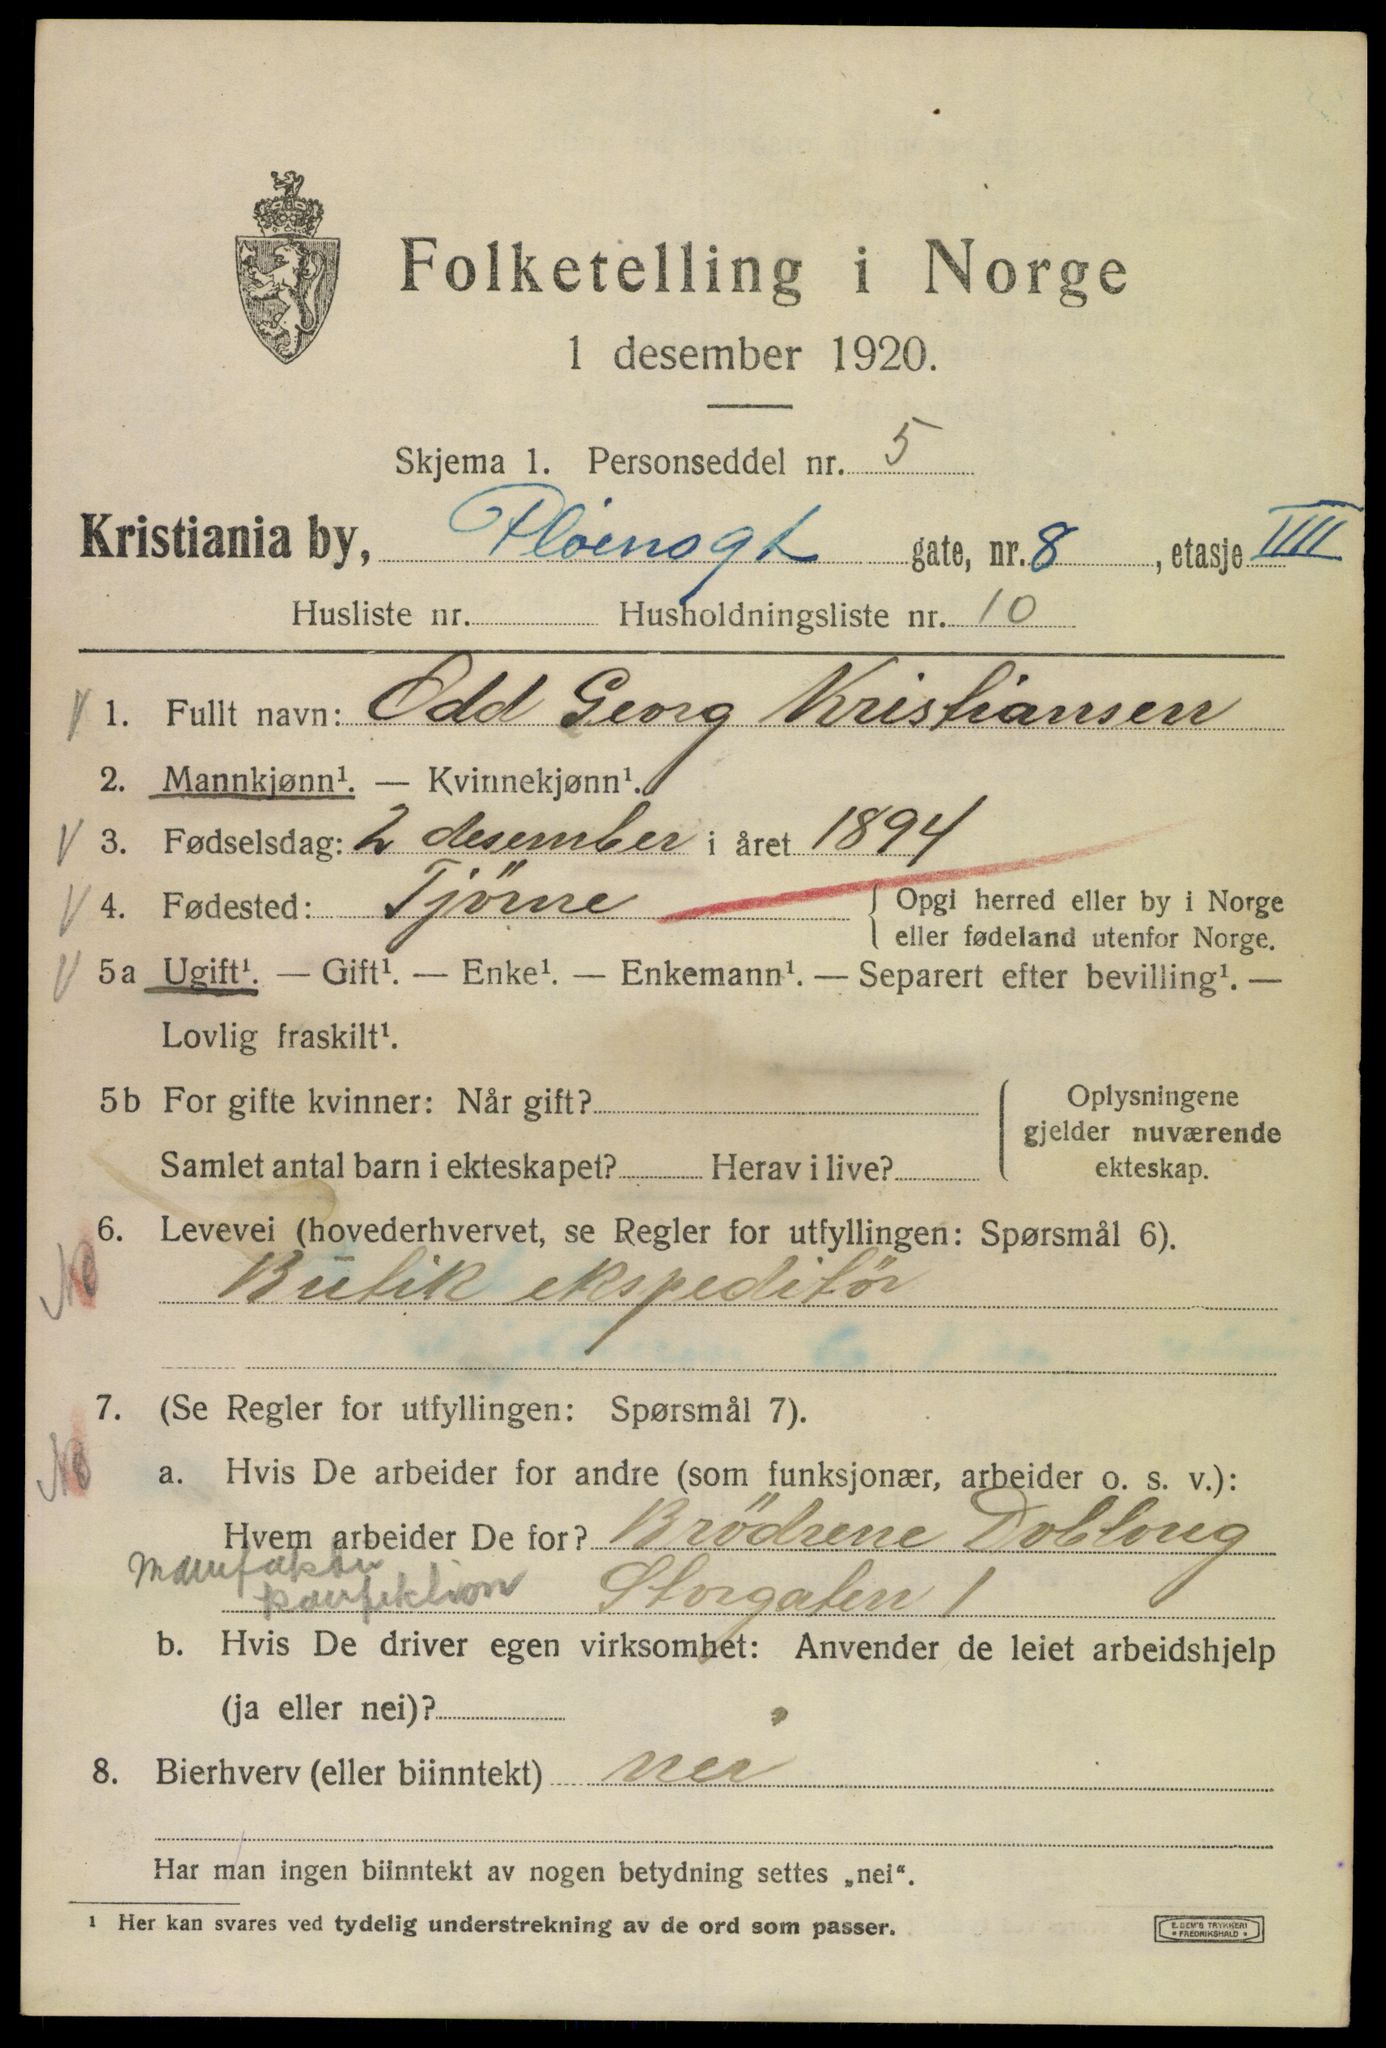 Folketelling i Norge
1 desember 1920.
Skjema 1. Personseddel nr. 5
Kristiania by, Pløensgt gate, nr. 8, etasje IIII
Husliste nr. Husholdningsliste nr. 10
1. Fullt navn: Odd Georg Kristiansen
2. Mannkjønn¹. — Kvinnekjønn¹.
3. Fødselsdag: 2 desember i året 1894
4. Fødested: Tjøme { Opgi herred eller by i Norge
eller fødeland utenfor Norge.
5a Ugift¹. — Gift¹. — Enke¹. — Enkemann¹. — Separert efter bevilling¹. —
Lovlig fraskilt¹.
5b For gifte kvinner: Når gift? Oplysningene
gjelder nuværende
Samlet antal barn i ekteskapet? Herav i live? ekteskap.
6. Levevei (hovederhvervet, se Regler for utfyllingen: Spørsmål 6).
Butik ekspeditør
7. (Se Regler for utfyllingen: Spørsmål 7).
a. Hvis De arbeider for andre (som funksjonær, arbeider o. s. v.):
Hvem arbeider De for? Brödrene Dobloug
konfektion Storgaten 1
b. Hvis De driver egen virksomhet: Anvender de leiet arbeidshjelp
(ja eller nei)?
8. Bierhverv (eller biinntekt) nei
Har man ingen biinntekt av nogen betydning settes „nei“.
¹ Her kan svares ved tydelig understrekning av de ord som passer.
E. DEM'S TRYKKERI
* FREDRIKSHALD *